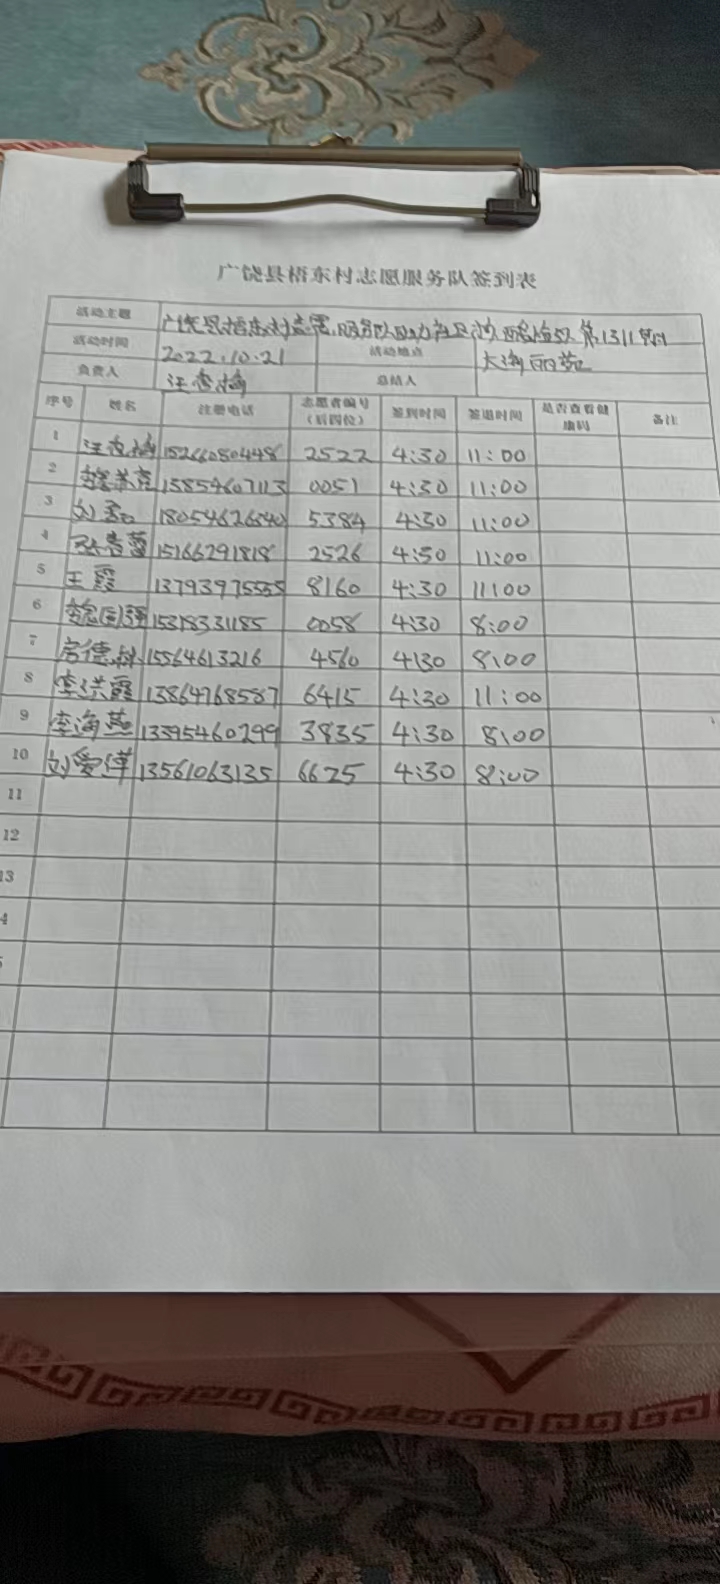 广饶县梧东村志愿服务队签到表
活动主题 广饶县梧东村志愿服务队助力社区 核酸检测 第1311期
活动时间 2022.10.21 活动地点 大海丽苑
负责人 汪秀梅 总结人
序号 姓名 注册电话 志愿者编号（后四位） 签到时间 签退时间 是否查看健康码 备注
1 汪秀梅 15266080448 2522 4:30 11:00
2 13854607113 0051 4:30 11:00
3 刘 18054626540 5384 4:30 11:00
4 15166291818 2526 4:50 11:00
5 王霞 13793975555 8160 4:30 11:00
6 魏国强 15318331185 0058 4:30 8:00
7 房德 15564613216 4560 4:30 8:00
8 李洪霞 13864768587 6415 4:30 11:00
9 李海燕 13395460299 3835 4:30 8:00
10 刘爱萍 13561063135 6625 4:30 8:00
11
12
13
4